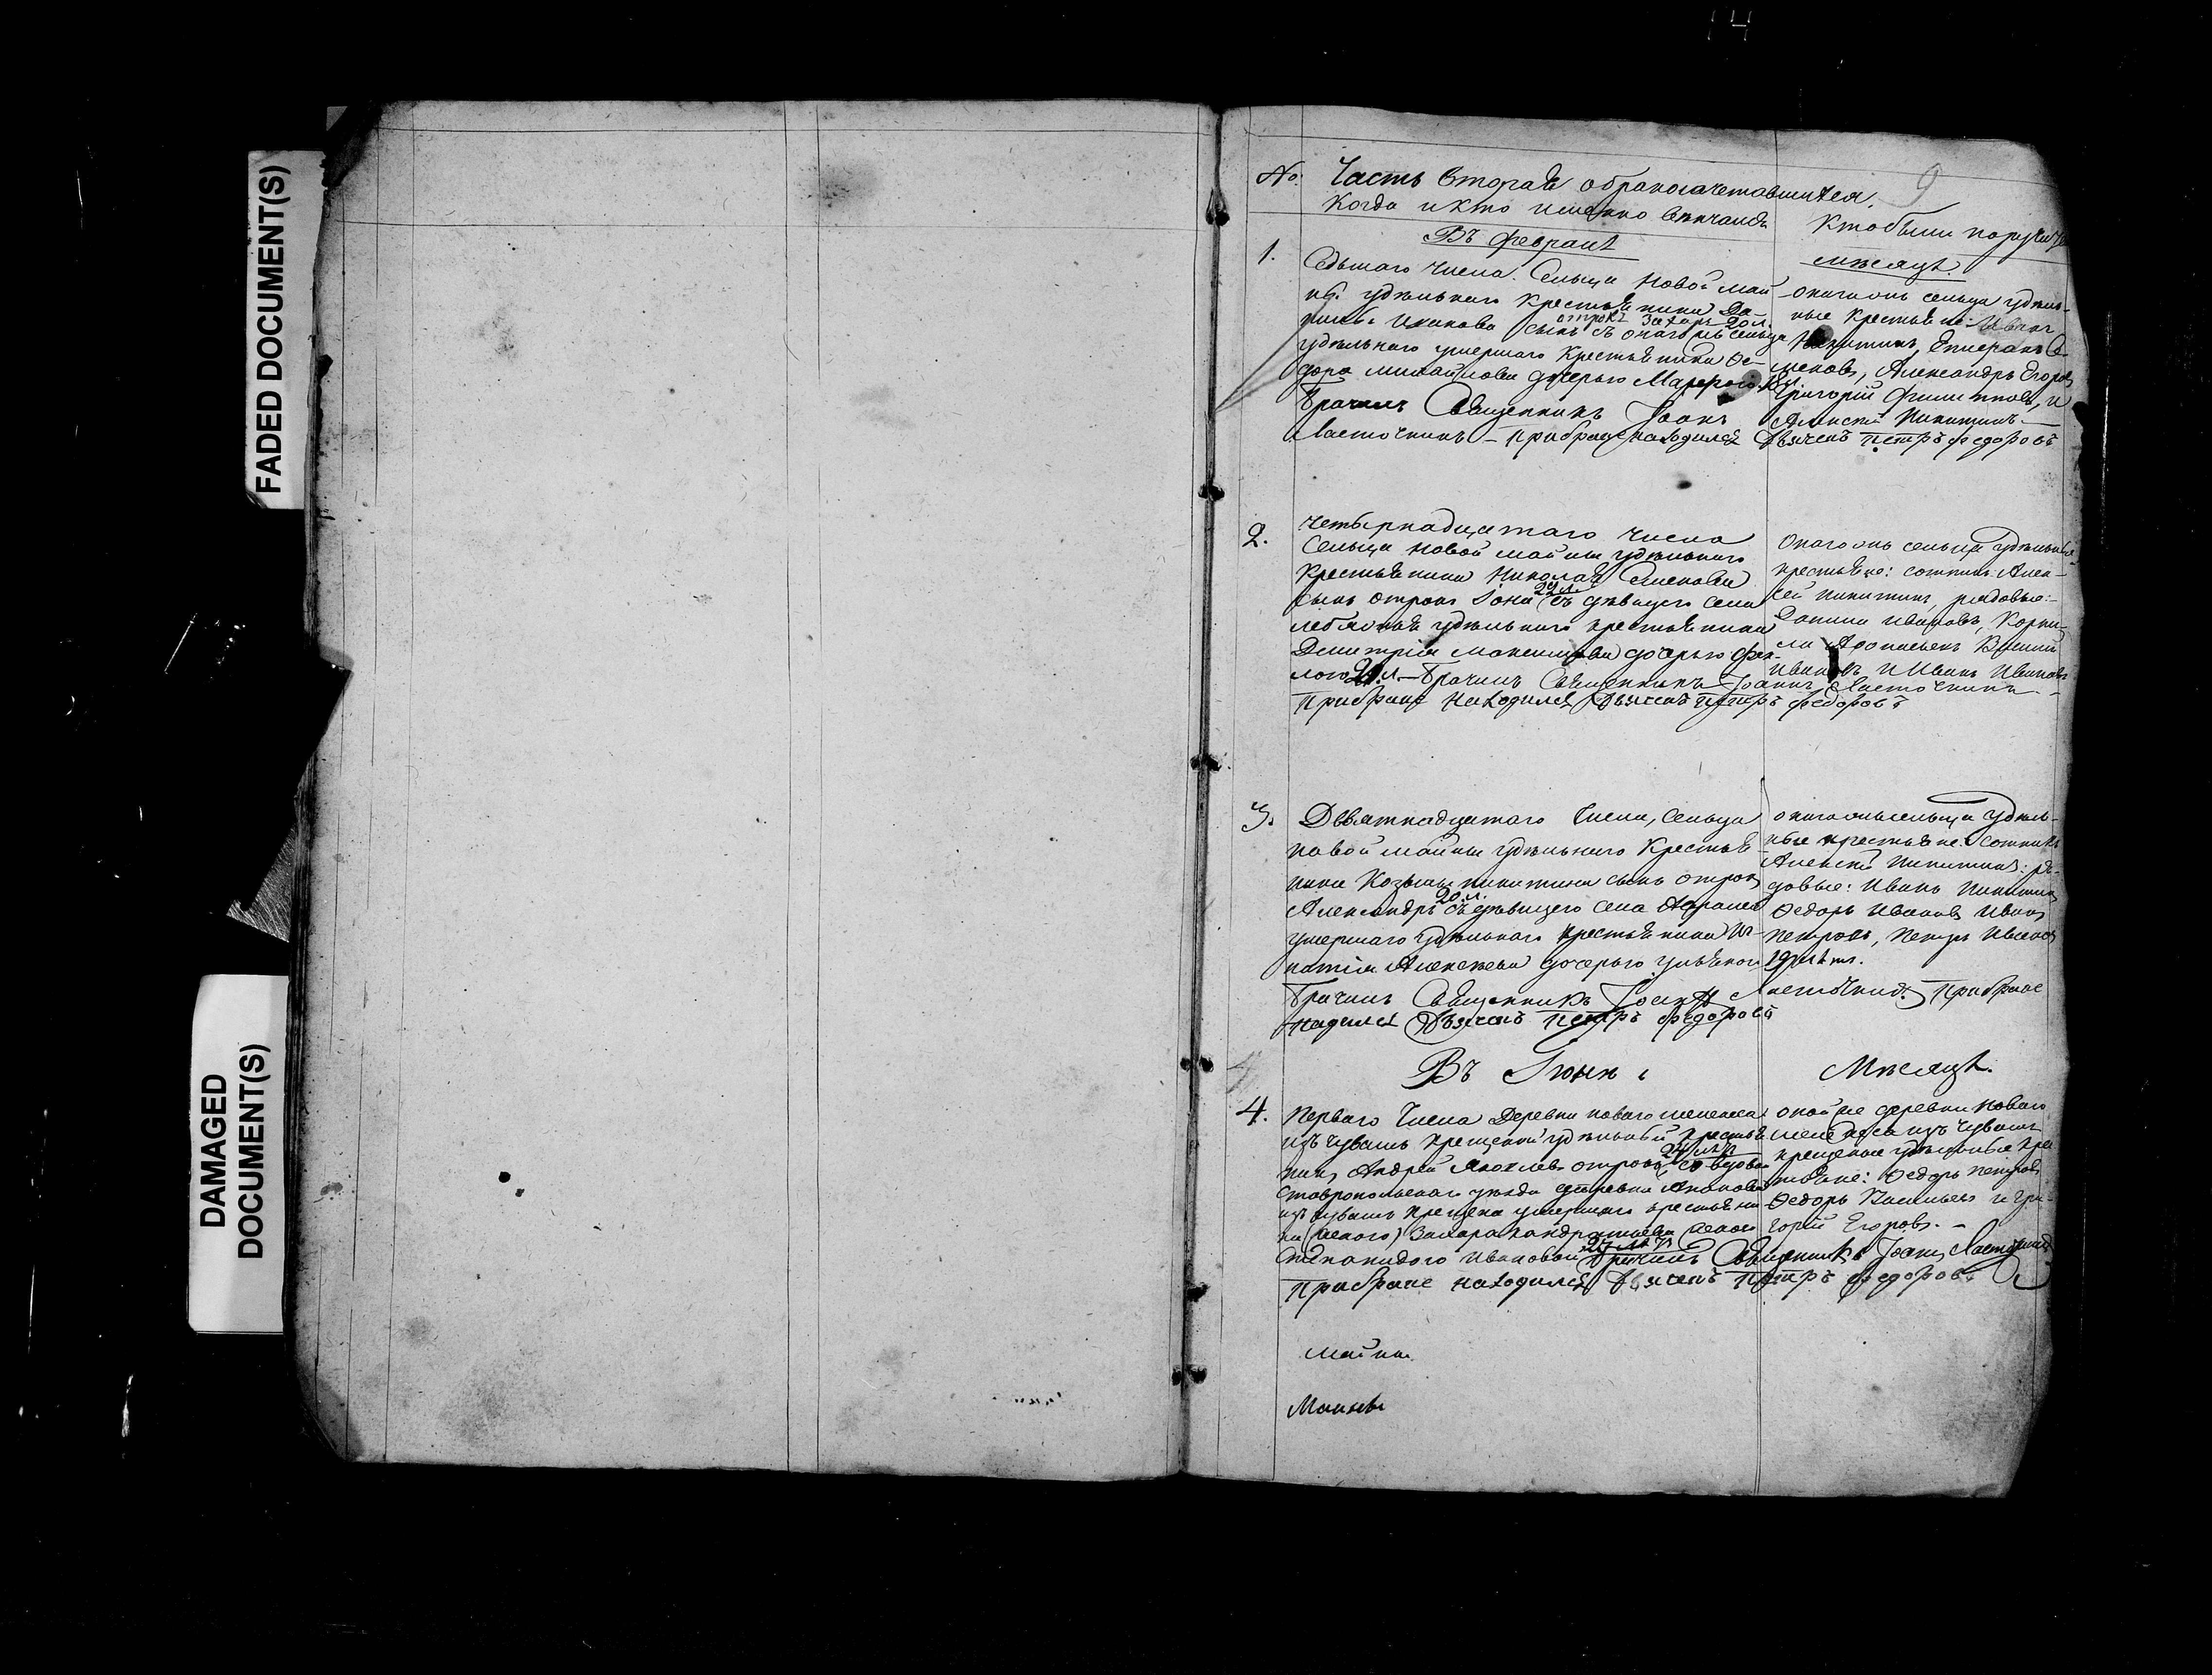 14
FADED DOCUMENT(S)
DAMAGED
DOCUMENT(S)
9
№ Часть вторая о бракосочетавшихся.
Когда и кто именно венчаны
Кто были поручи
Въ Февралѣ
мѣсяцѣ.
1.
Седьмаго числа. Сельца Новой май
ны удѣльнаго крестьянина
Иванова сынъ отрокъ Захаръ 20 л. съ онагожъ сельца
удѣльнаго умершаго крестьянина Ѳе-
дора Михайлова дочерью 18 л.
Брачилъ Священникъ Іоаннъ
Ласточкинъ – при браце находился Дьячекъ Петръ Федоровъ
онагожъ сельца удѣль-
ные крестьяне: Иванъ
Никитинъ, Се-
меновъ, Александръ Егоровъ
Григорій Филиповъ, и
Алексей Никитинъ
2.
четырнадцатаго числа
Сельца Новой майны удѣльнаго
крестьянина Николая Семенова
сынъ отрокъ Іона 22 л. съ дѣвицею села
удѣльнаго крестьянина
Димитрія Максимова дочерью Фек-
лою 21 л. – Брачилъ Священникъ Іоаннъ Ласточкинъ
При браце находился Дьячекъ Петръ Федоровъ
онагожъ сельца удѣльные
крестьяне: сотникъ Алек-
сей Никитинъ, рядовые:
Данила Ивановъ, Корни-
ла Афонасьевъ Василій
Ивановъ и Иванъ Ивановъ
3.
Девятнадцатаго числа, сельца
новой майны удѣльнаго крестья-
нина Козьмы Никитина сынъ отрокъ
Александръ 20 л. съ дѣвицею села
умершаго удѣльнаго крестьянина Иг-
натія Алексеева дочерью Ульяною 19 лѣтъ.
Брачилъ Священникъ Іоаннъ Ласточкинъ. При браце
надился Дьячекъ Петръ Федоровъ
онагожъ сельца удѣль-
ные крестьяне: Сотникъ
Алексей Никитинъ: ря-
довые: Иванъ Никитинъ
Ѳедоръ Ивановъ Иванъ
Петровъ, Петръ Ивановъ
Въ Іюнѣ
Мѣсяцѣ.
4.
Перваго числа Деревни новаго
изъ чувашъ крещеной удѣльный крестья-
нинъ Андрей Яковлевъ отрокъ 24 лѣтъ со вдовою
Ставропольскаго уѣзда деревни
изъ чувашъ крещена умершаго крестьяни-
на Захара Кондратьева женою
Степанидою Ивановой 27 лѣтъ Брачилъ Священникъ Іоаннъ Ласточкинъ
При браце находился Дьячекъ Петръ Федоровъ
оной же деревни новаго
изъ чувашъ
крещеные удѣльные кре
стьяне: Ѳедоръ Петровъ
Ѳедоръ Васильевъ и Гри-
горій Егоровъ. –
Майны
Майны